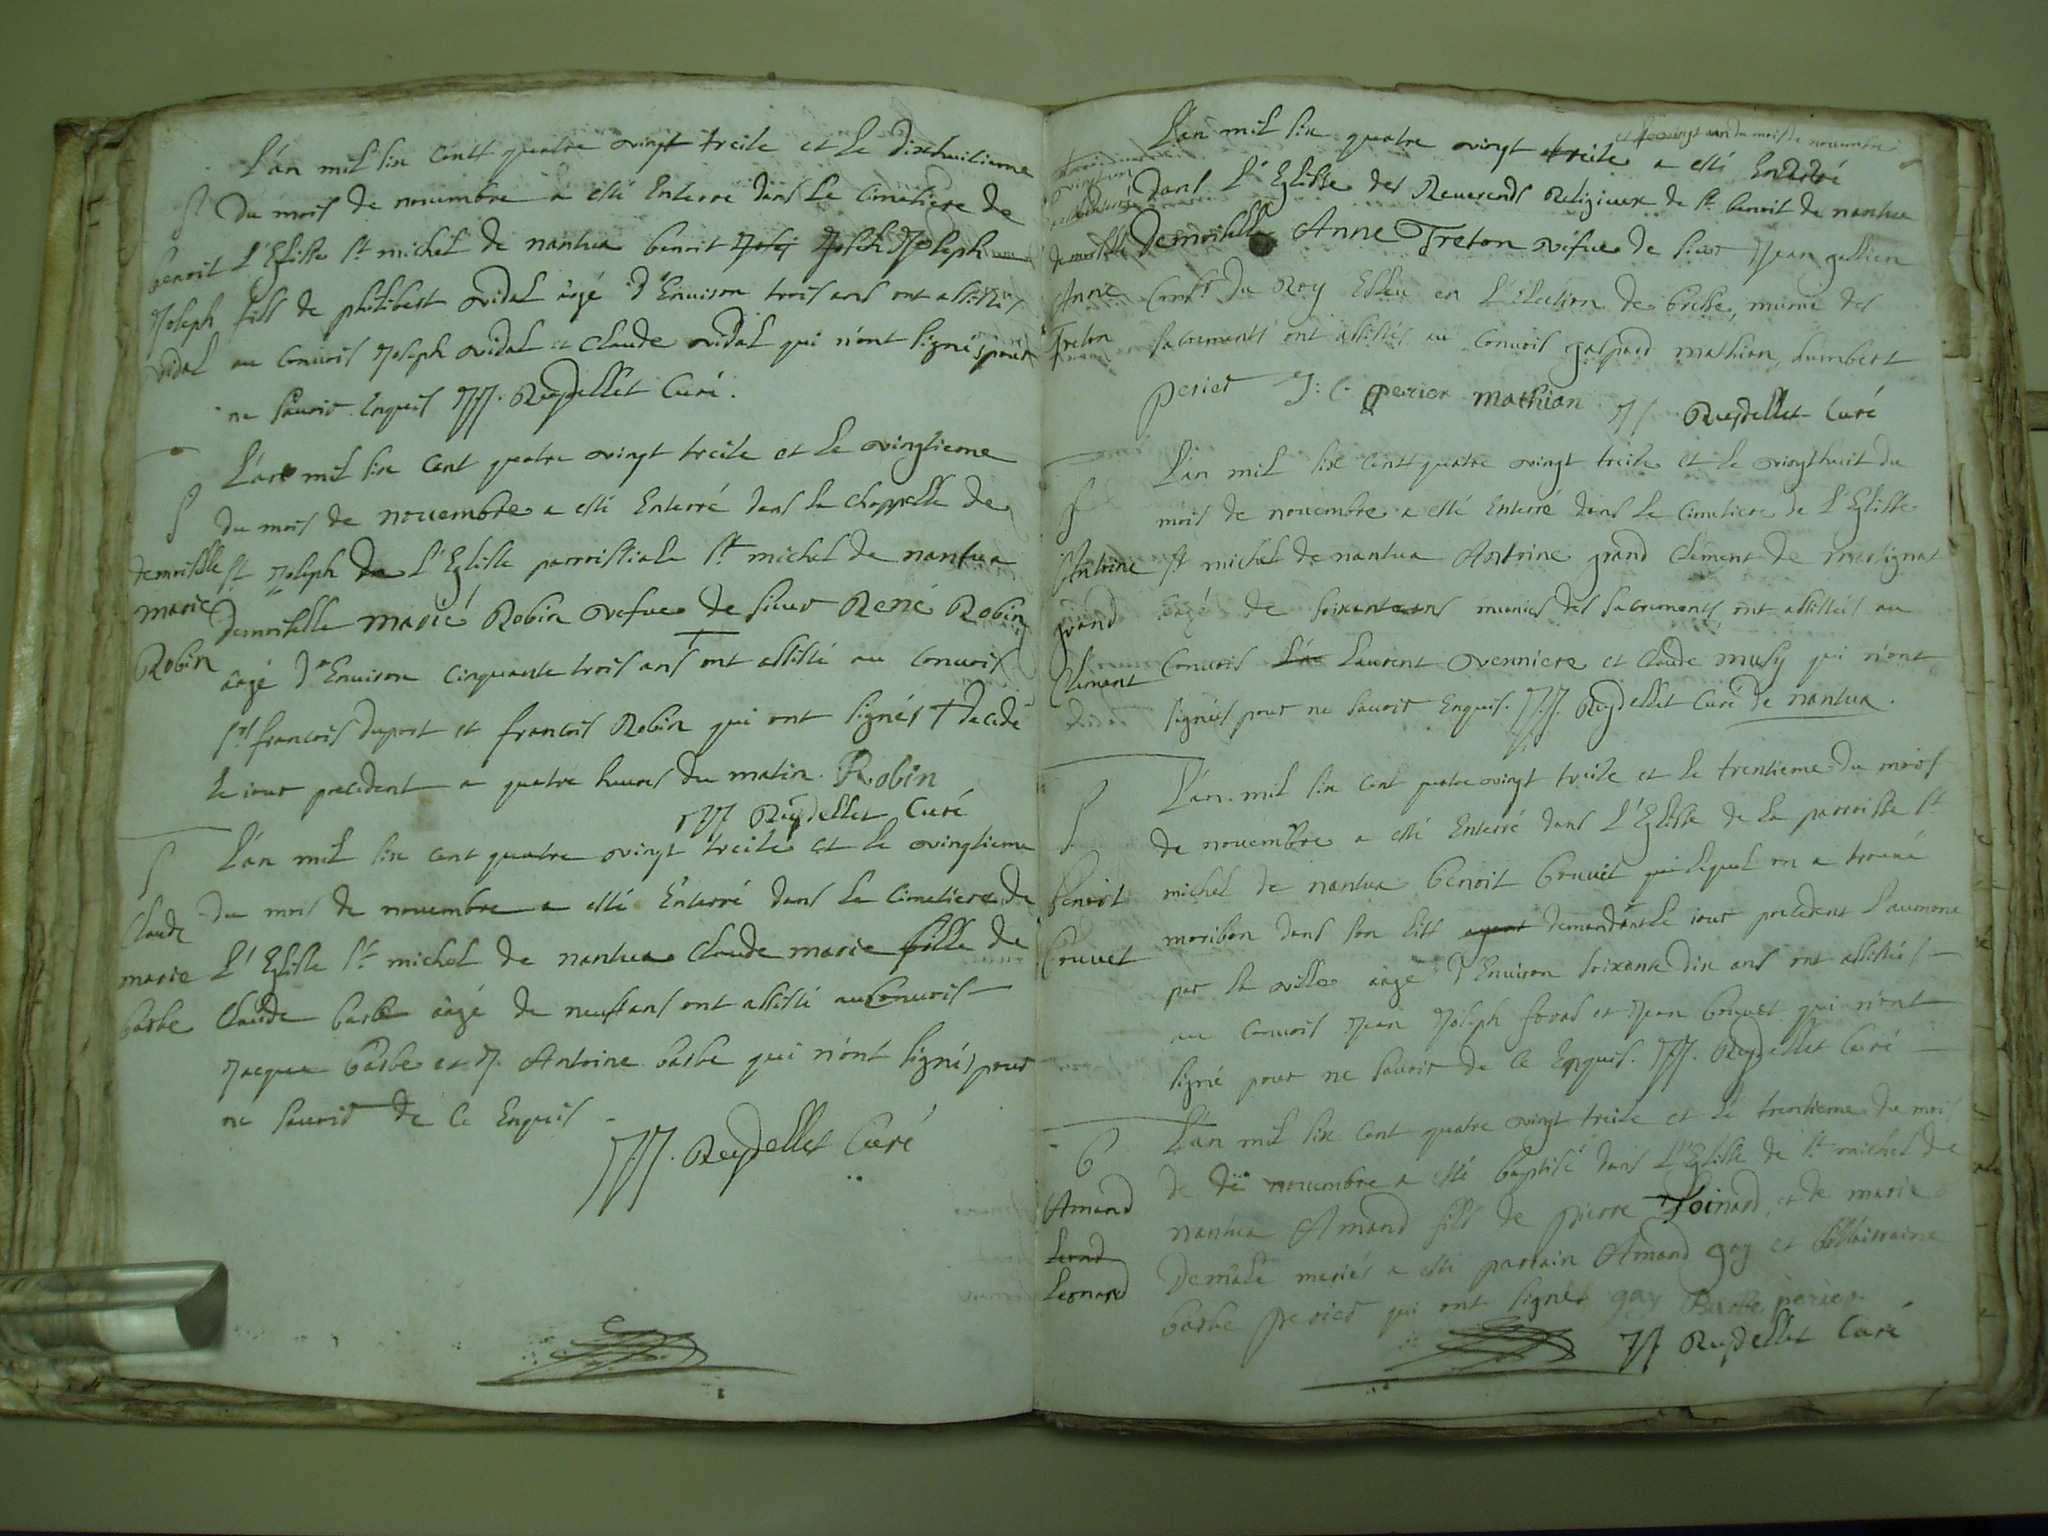 L'an mil six centt quatre vingt treile et le dixhuitieme
S du mois de novembre a esté Enterré dans le Cimetiere de
benoit L'Eglisse st michel de nantua benoit Joseph Joseph
Joseph fils de philibert vidal âgé d'Environ trois ans ont assisté
vidal au Convois Joseph vidal et Claude vidal qui n'ont signés pour
ne savoir Enquis JJ. Reydellet Curé.
L'an mil six cent quatre vingt treile et le vingtieme
S du mois de nouembre a esté Enterré dans la chappelle de
demoiselle st Joseph de L'Eglisse parroissiale st michel de nantua
marie demoiselle marie Robin vefue de sieur René Robin
Robin âagé d'Environ Cinquante trois ans ont assisté au Convois
srs francois duport et francois Robin qui ont signés † decedé
le iour precedent a quatre heures du matin. Robin
JJ Reydellet Curé
S L'an mil six cent quatre vingt treile et le vingtieme
Claude du mois de nouembre a esté Enterré dans le Cimetiere de
marie L'Eglisse st michel de nantua Claude marie fille de
barbe Claude barbe âagé de neuf ans ont assisté au Convois
Jacque barbe et J. Antoine barbe qui n'ont signés pour
ne savoir de Ce Enquis
JJ. Reydellet Curé
L'an mil six quatre vingt treile et le vingt un du mois de nouembre a esté Enterré
dans L'Eglisse des Reuerends Religieux de st benoit de nantua
demoiselle demoiselle Anne Treton véfue de sieur Jean gallien
Anne Consr du Roy Esleu en L'élection de bresse, munie des
Treton sacrements ont assistés au Convois gaspard mathian, humbert
perier J: C. perier mathian JJ Reydellet Curé
L'an mil six centt quatre vingt treile et le vingthuit du
S mois de nouembre a esté Enterré dans le Cimetiere de L'Eglisse
Antoine st michel de nantua Antoine grand Clement de
grand âagé de soixante ans munis des sacrements, ont assistés au
Clement Convois Laurent et Claude musy qui n'ont
signés pour ne savoir Enquis. JJ. Reydellet Curé de nantua.
L'an mil six cent quatre vingt treile et le trentieme du mois
S de nouembre a esté Enterré dans L'Eglisse de la parroisse st
benoit michel de nantua benoit bruuet lequel on a trouué
bruuet moribon dans son litt demandant le iour precedent L'aumone
par la ville âagé d'Environ soixante dix ans ont assistés
au Convois Jean Joseph et Jean bruuet qui n'ont
signé pour ne savoir de Ce Enquis. JJ. Reydellet Curé
L'an mil six cent quatre vingt treile et le trentieme du mois
B de de nouembre a esté baptisé dans L'Eglisse de st michel de
Amand nantua Amand fils de pierre et de marie
Leonard mariés a esté parrain Amand gay et
barbe perier qui ont signés gay Barbe perier
JJ Reydellet Curé